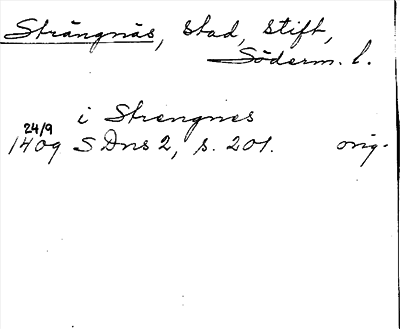 Strängnäs, stad, stift,
Söderm. l.
i Strengnes
24/9
1409 SDns 2, s. 201. orig.